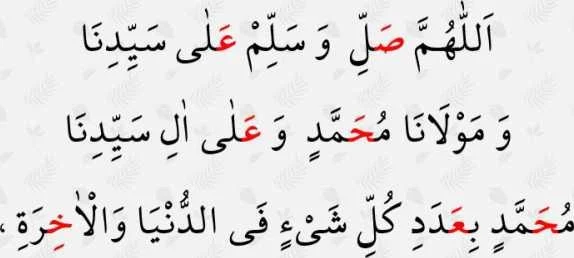 اَللّٰهُمَّ صَلِّ وَ سَلِّمْ عَلٰى سَيِّدِنَا
وَ مَوْلَانَا مُحَمَّدٍ وَ عَلٰى اٰلِ سَيِّدِنَا
مُحَمَّدٍ بِعَدَدِ كُلِّ شَىْءٍ فَى الدُّنْيَا وَالْاٰخِرَةِ ،